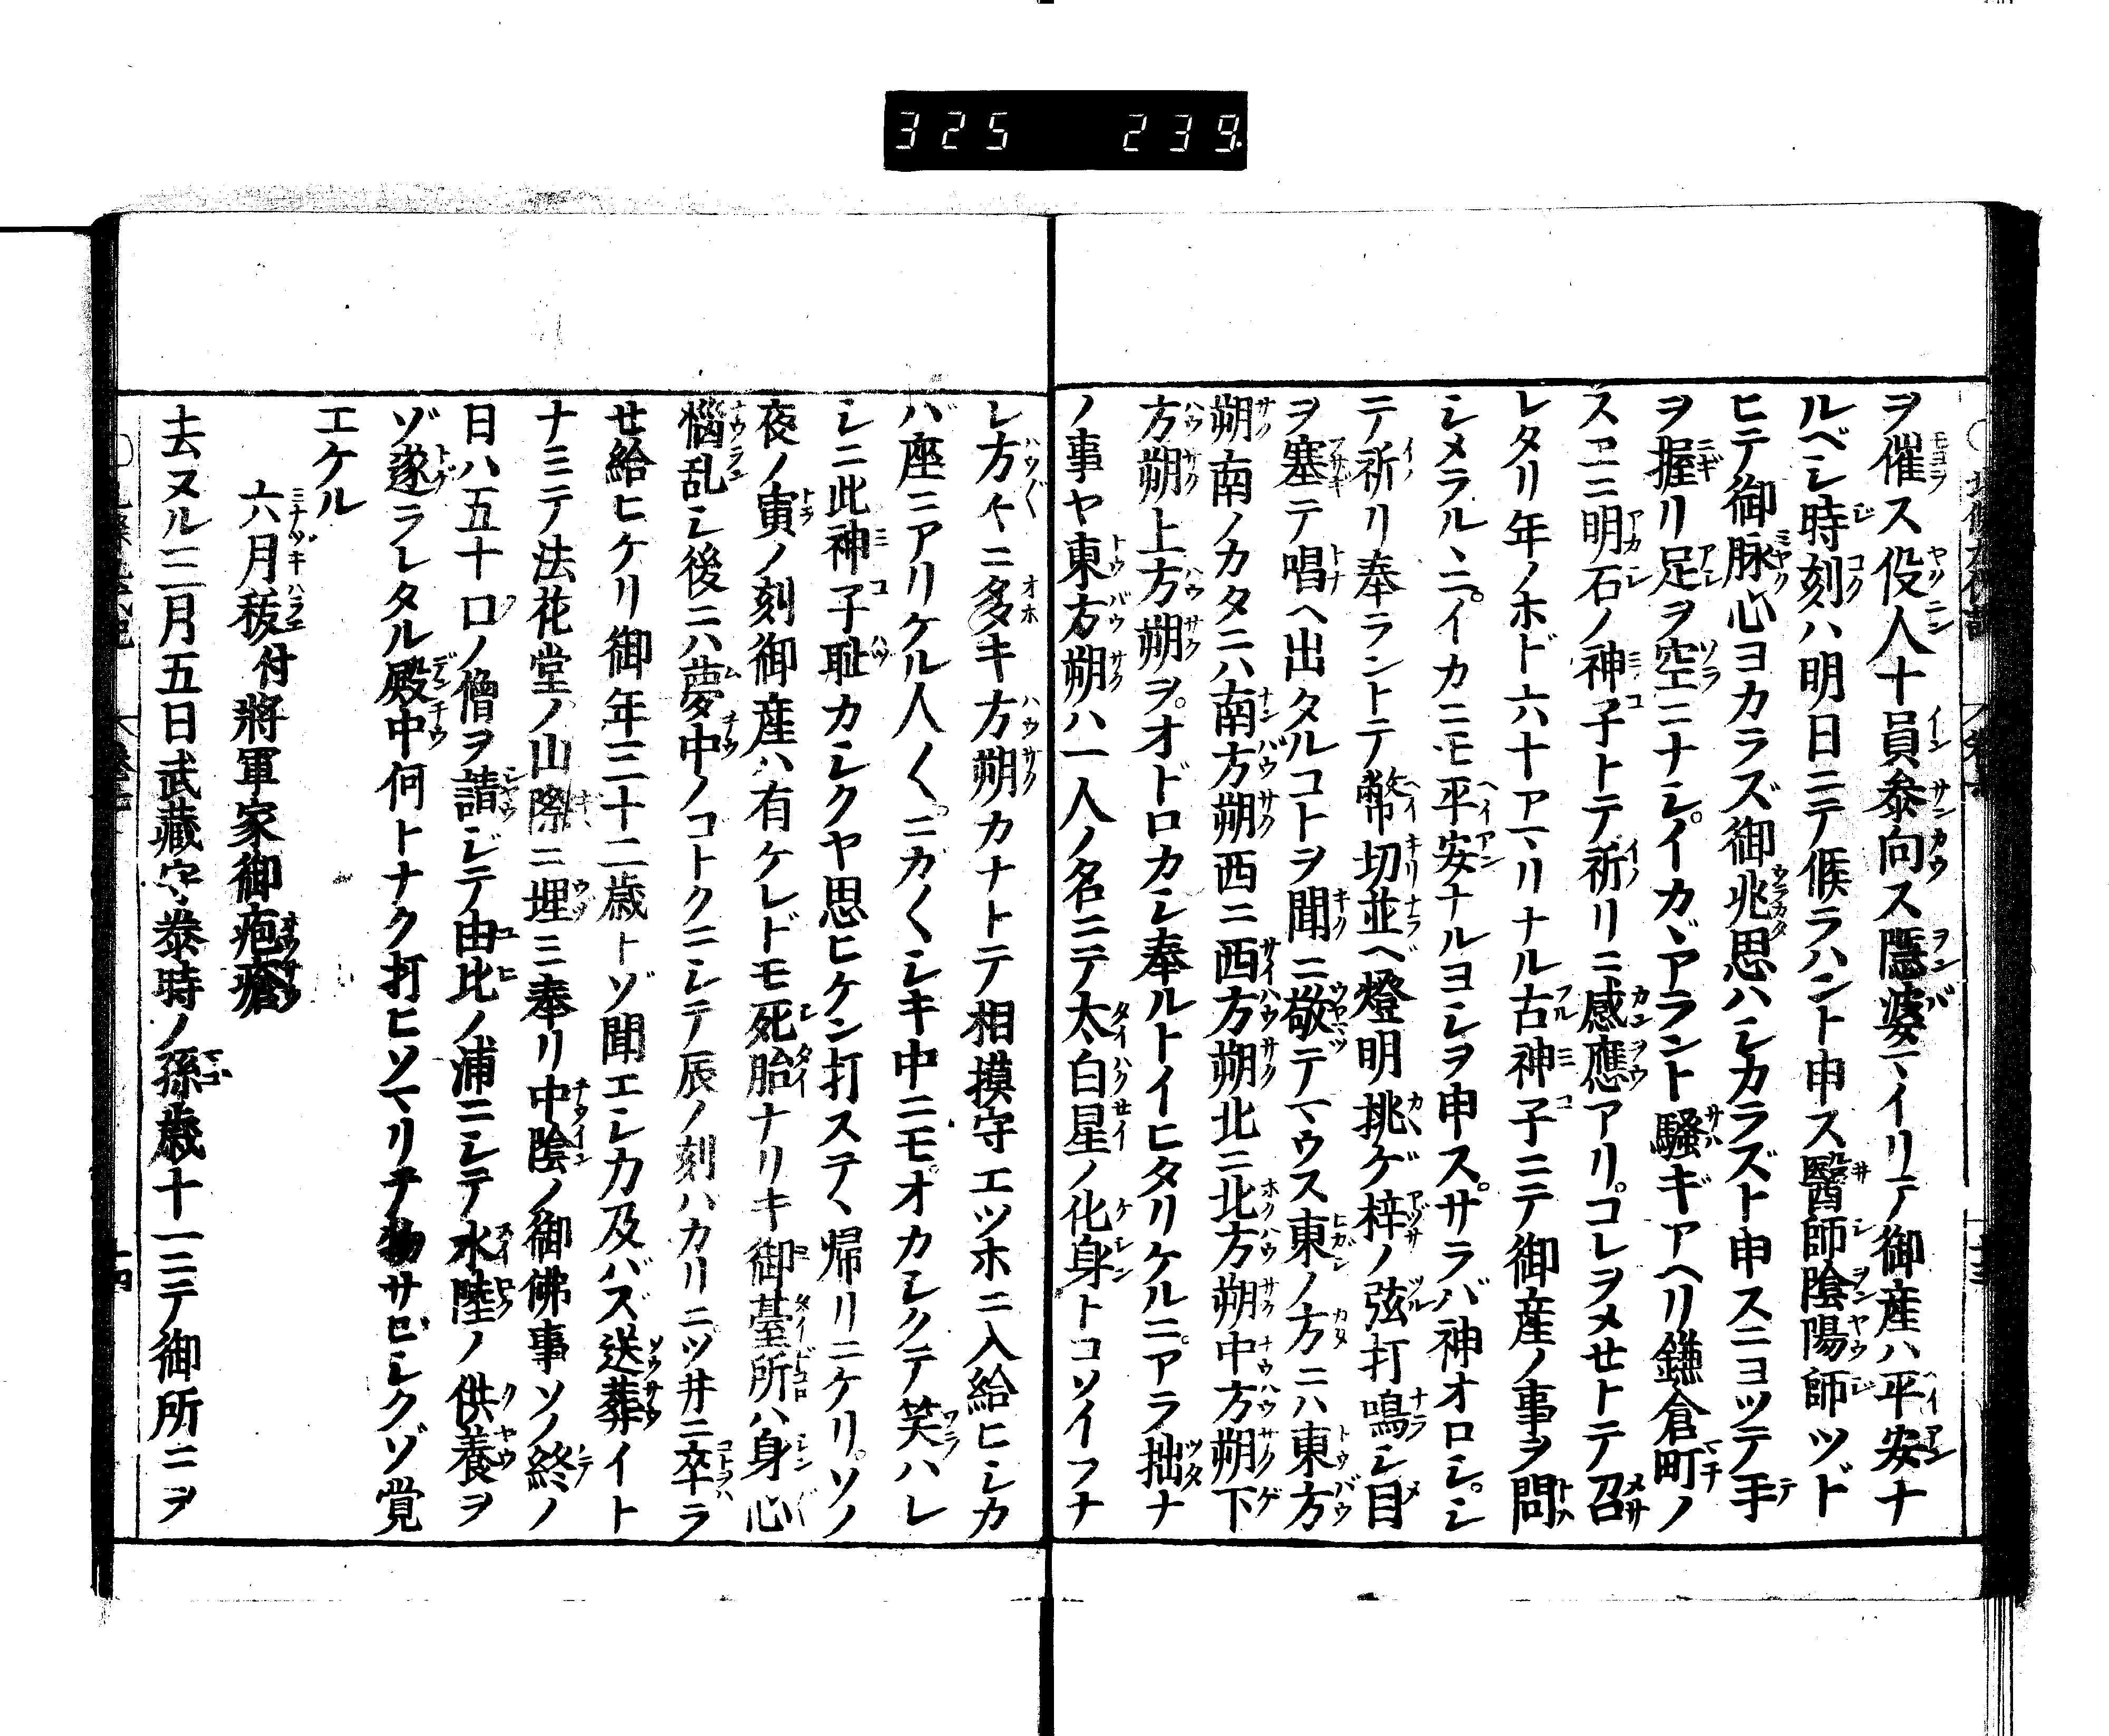 325 239
ヲ催ス役人十員参向ス隠婆マイリテ御産ハ平安ナ
ルベシ時刻ハ明日ニテ候ラハント申ス醫師陰陽師ツド
ヒテ御脉心ヨカラズ御兆思ハシカラズト申スニヨツテ手
ヲ握リ足ヲ空ニナシイカヾアラント騒ギアヘリ鎌倉町ノ
スヱニ明石ノ神子トテ祈リニ感應アリコレヲメセトテ召
レタリ年ノホド六十アマリナル古神子ニテ御産ノ事ヲ問
シメラルヽニイカニモ平安ナルヨシヲ申スサラバ神オロシシ
テ祈リ奉ラントテ幣切並ベ燈明挑ゲ梓ノ弦打鳴シ目
ヲ塞テ唱ヘ出タルコトヲ聞ニ敬テマウス東ノ方ニハ東方
朔南ノカタニハ南方朔西ニ西方朔北ニ北方朔中方朔下
方朔上方朔ヲオドロカシ奉ルトイヒタリケルニアラ拙ナ
ノ事ヤ東方朔ハ一人ノ名ニテ太白星ノ化身トコソイフナ
レ方々ニ多キ方朔カナトテ相摸守エツホニ入給ヒシカ
バ座ニアリケル人〱ニガ〱シキ中ニモオカシクテ笑ハレ
シニ此神子耻カシクヤ思ヒケン打ステヽ帰リニケリソノ
夜ノ寅ノ刻御産ハ有ケレドモ死胎ナリキ御臺所ハ身心
惱乱シ後ニハ夢中ノコトクニシテ辰ノ刻ハカリニツ井ニ卒ラ
せ給ヒケリ御年三十二歳トゾ聞エシ力及バズ送葬イト
ナミテ法花堂ノ山際ニ埋ミ奉リ中陰ノ御佛事ソノ終ノ
日ハ五十口ノ僧ヲ請ジテ由比ノ浦ニシテ水陸ノ供養ヲ
ゾ遂ラレタル殿中何トナク打ヒソマリテ物サビシクゾ覚
エケル
六月祓付將軍家御疱瘡
去ヌル三月五日武藏守泰時ノ孫歳十一ニテ御所ニヲ